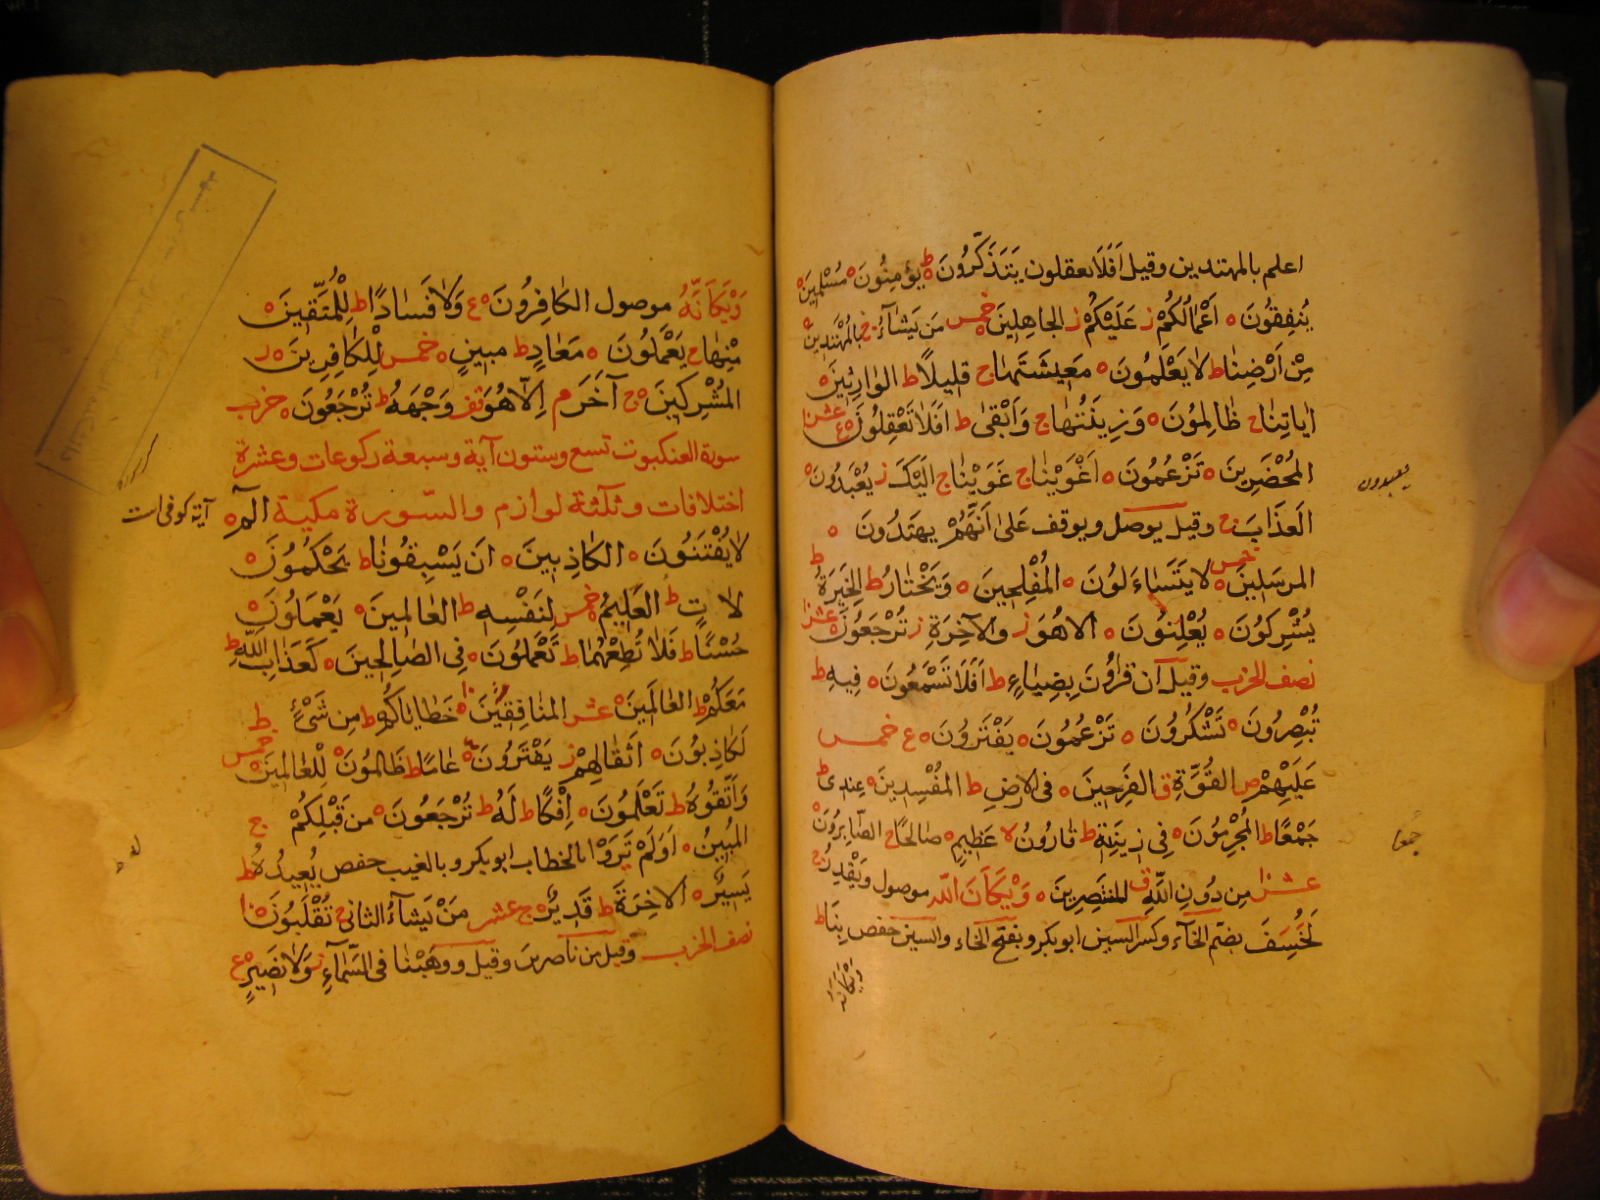 اعلم بالمهتدين وقيل اَفَلَا تعقلون يَتَذَكَّرُونَ ه ط يُؤمِنُونَ ه مُسْلِمِينَ ه
يُنْفِقُونَ ه اَعْمَالُكُمْ ز عَلَيْكُمْ ز الجاهِلِينَ خمس مَن يَشَآءُ ج بالْمُهْتَدِينَ ه
مِنْ اَرْضِنَا ط لَا يَعْلَمُونَ ه مَعِيشَتَهَا ج قَلِيلًا ط الوَارِثِينَ ه
اٰيَاتِنَا ج ظَالِمُونَ ه وَزِينَتُهَا ج وَاَبْقٰى ط اَفَلَا تَعْقِلُونَ ه ع عشر
المُحْضَرِينَ ه تَزْعُمُونَ ه اَغْوَيْنَا ج غَوَيْنَا ج اِلَيْكَ ز يَعْبُدُونَ ه
يعبدون
الَعذَابَ ج وقيل يوصل ويوقف عَلٰى اَنَّهُمْ يهتَدُونَ ه
المرسَلِينَ ه خمس لَا يَتَسَاءَلُونَ ه الْمُفْلِحِينَ ه وَيَخْتَارُ ط الْخِيَرَةُ ط
يُشْرِكُونَ ه يُعْلِنُونَ ه الا هُوَ ز والآخِرَةِ ز تُرْجَعُونَ ه عشر
نصف الحزب وقيل آن قرأون بِضِيَاءٍ ط اَفَلَا تَسْمَعُونَ ه فِيهِ ط
تُبْصِرُونَ ه تَشْكُرُونَ ه تَزْعُمُونَ ه يَفْتَرُونَ ه ع خمس
عَلَيْهِمْ ص القُوَّةِ ق الفَرِحِينَ ه فِى الارضِ ط المُفْسِدِينَ ه عِندِى ط
جَمْعًا ط المُجْرِمُونَ ه فِى زِينَتِهِ ط قَارُونُ لا عَظِيمٍ ه صَالِحًا ج الصَّابِرُونَ ه
جَمْعًا
عشر مِن دُونِ اللّٰهِ ق المُنتَصِرِينَ ه وَيْكَاَنَّ اللّه موصول وَيَقْدِرُ ج
لَخُسِفَ بضم الخآء وكسر السين ابو بكر وبفتح الخاء والسين حفص بِنَا ط
وَيْكَاَنَّهُ
وَيْكَاَنَّهُ موصول الكَافِرُونَ ه ع وَلَا فَسَادًا ط لِلْمُتَّقِينَ ه
مِنْهَا ج يَعْمَلُونَ ه مَعَادٍ ط مبينٍ ه خمس لِلْكَافِرِينَ ه ز
المُشْرِكِينَ ه ج آخَرَ م اِلَّا هُوَ قف وَجْهَهُ ط تُرْجَعُونَ ه حزب
سورة العنكبوت تسع وستون آية وسبعة ركوعات وعشرة
اختلافات وثلثة لوازم والسّورة مكية الٓمٓ ه
آية كوفى است
لَا يُفْتَنُونَ ه الكَاذِبِينَ ه اَن يَسْبِقُونَا ط يَحْكُمُونَ ه
لَاٰتٍ ط العَلِيمُ خمس لِنَفْسِهِ ط العَالَمِينَ ه يَعْمَلُونَ ه
حُسْنًا ط فَلَا تُطِعْهُمَا ط تَعْمَلُونَ ه فِى الصَّالِحِينَ ه كَعَذَابِ اللّٰهِ ط
مَعَكُمْ ط العَالَمِينَ ه عشر المنَافِقِينَ ه خَطَايَاكُمْ ط مِن شَىْءٍ ط
لَكَاذِبُونَ ه اَثْقَالِهِمْ ز يَفْتَرُونَ ه ع عَامًا ط ظَالِمُونَ ه لِلْعَالَمِينَ ه خمس
وَاتَّقُوهُ ط تَعْلَمُونَ ه اِفْكًا ط لَهُ ط تُرْجَعُونَ ه مِن قَبْلِكُمْ ج
المُبِينُ ه اَوَلَمْ تَرَوْا بالخطاب ابو بكر وبالغيب حفص يُعِيدُهُ ط
يَسِيرٌ ه الاخِرَةَ ط قَدِيرٌ ه ج عشر مَنْ يَشَآءُ الثانى ج تُقْلَبُونَ ه
نصف الحزب وقيل من ناصرين وقيل ووهَبْنا فى السَّمَآءِ ز وَلَا نَصِيرٍ ه ع